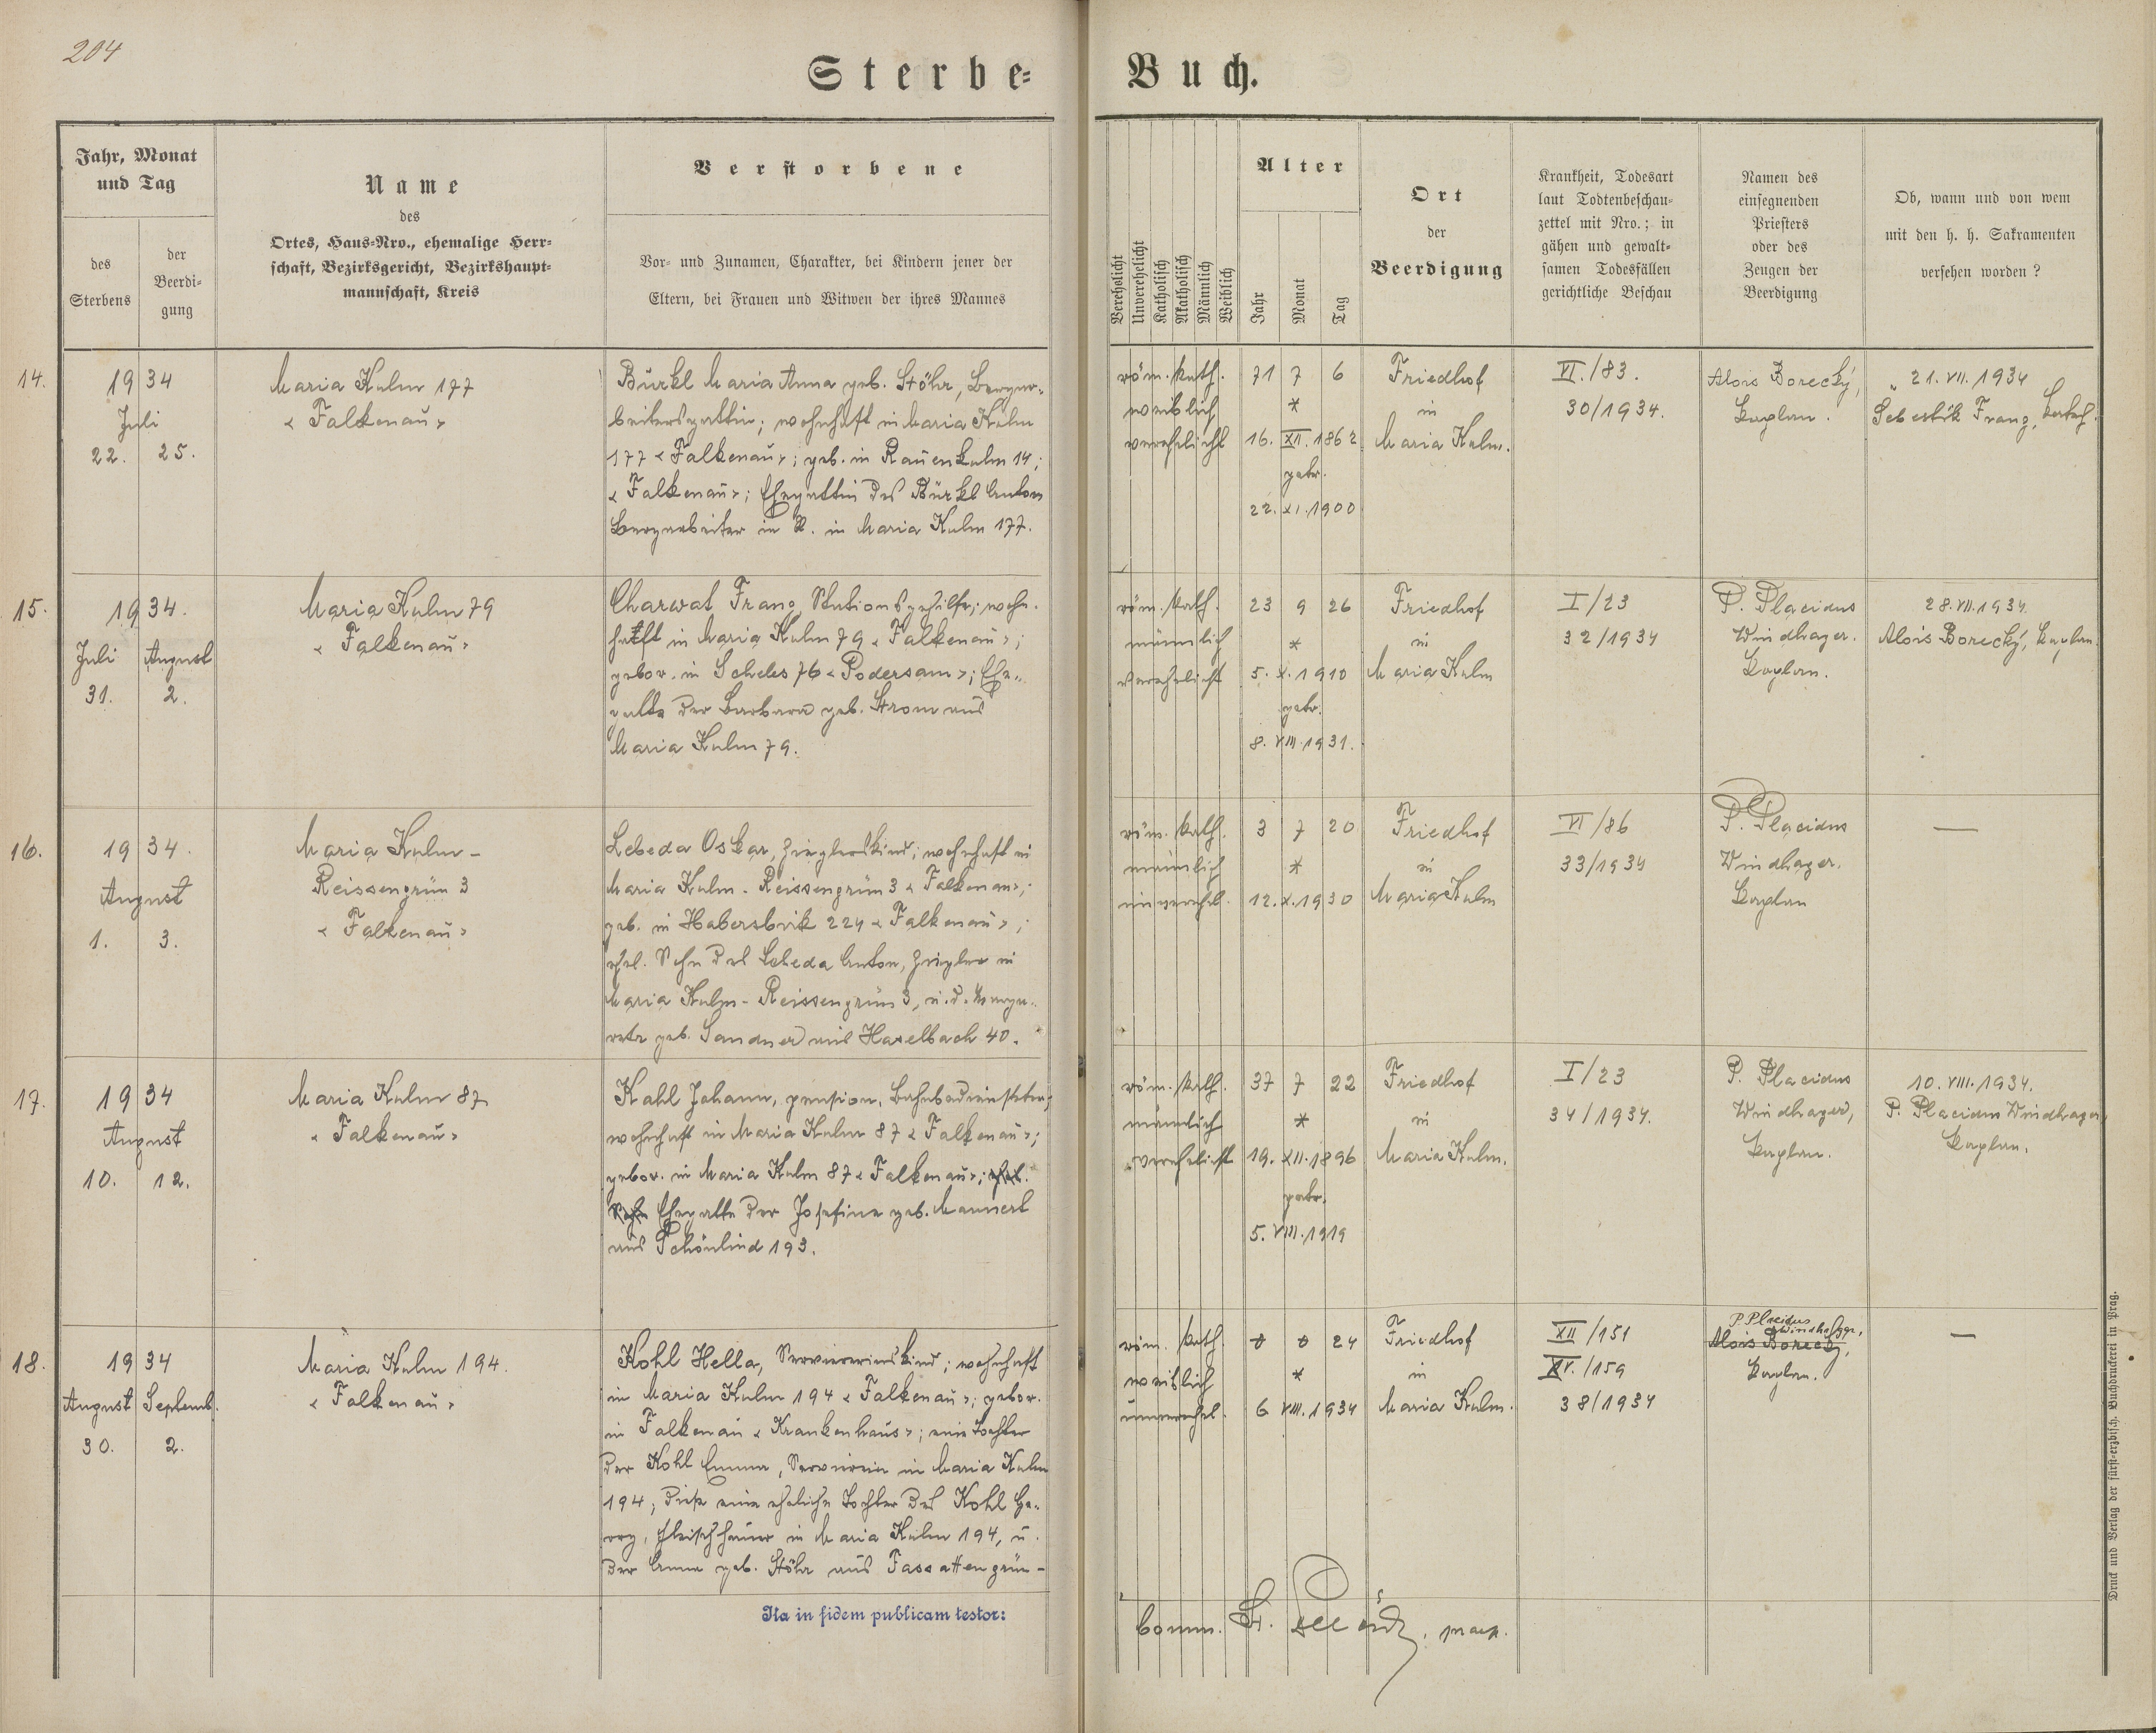 204
Sterbe-
Buch.
Jahr, Monat
und Tag
des
Sterbens
der
Beerdi-
gung
Name
des
Ortes, Haus-Nro., ehemalige Herr-
schaft, Bezirksgericht, Bezirkshaupt-
mannschaft, Kreis
Verstorbene
Vor- und Zunamen, Charakter, bei Kindern jener der
Eltern, bei Frauen und Witwen der ihres Mannes
Verehelicht
Unverehelicht
Katholisch
Akatholisch
Männlich
Weiblich
Alter
Jahr
Monat
Tag
Ort
der
Beerdigung
Krankheit, Todesart
laut Todtenbeschau-
zettel mit Nro.; in
gähen und gewalt-
samen Todesfällen
gerichtliche Beschau
Namen des
einsegnenden
Priesters
oder des
Zeugen der
Beerdigung
Ob, wann und von wem
mit den h. h. Sakramenten
versehen worden?
14.
1934
Juli
22. 25.
Maria Kulm 177
« Falkenau »
Bürkl Maria Anna geb. Stöhr, Bergar-
beitersgattin; wohnhaft in Maria Kulm
177 « Falkenau »; geb. in Rauenkulm 14;
« Falkenau »; Ehegattin des Bürkl Anton
Bergarbeiter in R. in Maria Kulm 177.
röm. kath.
weiblich
verehelicht
71 7 6
*
16. XII. 1862
getr.
22. XI. 1900
Friedhof
in
Maria Kulm.
VI./83.
30/1934.
Alois Borecký,
Kaplan.
21. VII. 1934
Sebestik Franz,
15.
1934.
Juli August
31. 2.
Maria Kulm 79
« Falkenau »
Charwat Franz, Stationsgehilfe; wohn-
haft in Maria Kulm 79 « Falkenau »;
gebor. in Scheles 76 « Podersam »; Ehe-
gatte der Barbara geb. Strom aus
Maria Kulm 79.
röm. kath.
männlich
verehelicht
23 9 26
*
5. X. 1910
getr.
8. VIII. 1931.
Friedhof
in
Maria Kulm
I/23
32/1934
P. Placidus
Windhager.
Kaplan.
28. VII. 1934.
Alois Borecký, Kaplan.
16.
1934.
August
1. 3.
Maria Kulm-
Reissengrün 3
« Falkenau »
Lebeda Oskar, Zieglerskind; wohnhaft in
Maria Kulm - Reissengrün 3 « Falkenau »;
geb. in Habersbirk 224 « Falkenau »;
ehel. Sohn des Lebeda Anton, Ziegler in
Maria Kulm - Reissengrün 3, u. d. Marga-
rete geb. Sandner aus Haselbach 40.
röm. kath.
männlich
unverehel.
3 7 20
*
12. X. 1930
Friedhof
in
Maria Kulm
VI/86
33/1934
P. Placidus
Windhager.
Kaplan
—
17.
1934
August
10. 12.
Maria Kulm 87
« Falkenau »
Kahl Johann, pension. Bahnbediensteter;
wohnhaft in Maria Kulm 87 « Falkenau »;
gebor. in Maria Kulm 87 « Falkenau »; ehel.
Sohn Ehegatte der Josefine geb. Mannert
aus Schönlind 193.
röm. kath.
männlich
verehelicht
37 7 22
*
19. XII. 1896
getr.
5. VIII. 1919
Friedhof
in
Maria Kulm.
I/23
34/1934.
P. Placidus
Windhager,
Kaplan.
10. VIII. 1934.
P. Placidus Windhager,
Kaplan.
18.
1934
August Septemb.
30. 2.
Maria Kulm 194.
« Falkenau »
Kohl Hella, Serviererinskind; wohnhaft
in Maria Kulm 194 « Falkenau »; gebor.
in Falkenau « Krankenhaus »; eine Tochter
der Kohl Emma, Serviererin in Maria Kulm
194; diese eine eheliche Tochter des Kohl Ge-
org, Fleischhauer in Maria Kulm 194, u.
der Anna geb. Stöhr aus Fassattengrün -
röm. kath.
weiblich
unverehel.
0 0 24
*
6 VIII. 1934
Friedhof
in
Maria Kulm.
XII/151
XV./159
38/1934
P. Placidus
Windhager,
Alois Borecký,
Kaplan.
—
Ita in fidem publicam testor:
Druck und Verlag der fürst-erzbisch. Buchdruckerei in Prag.